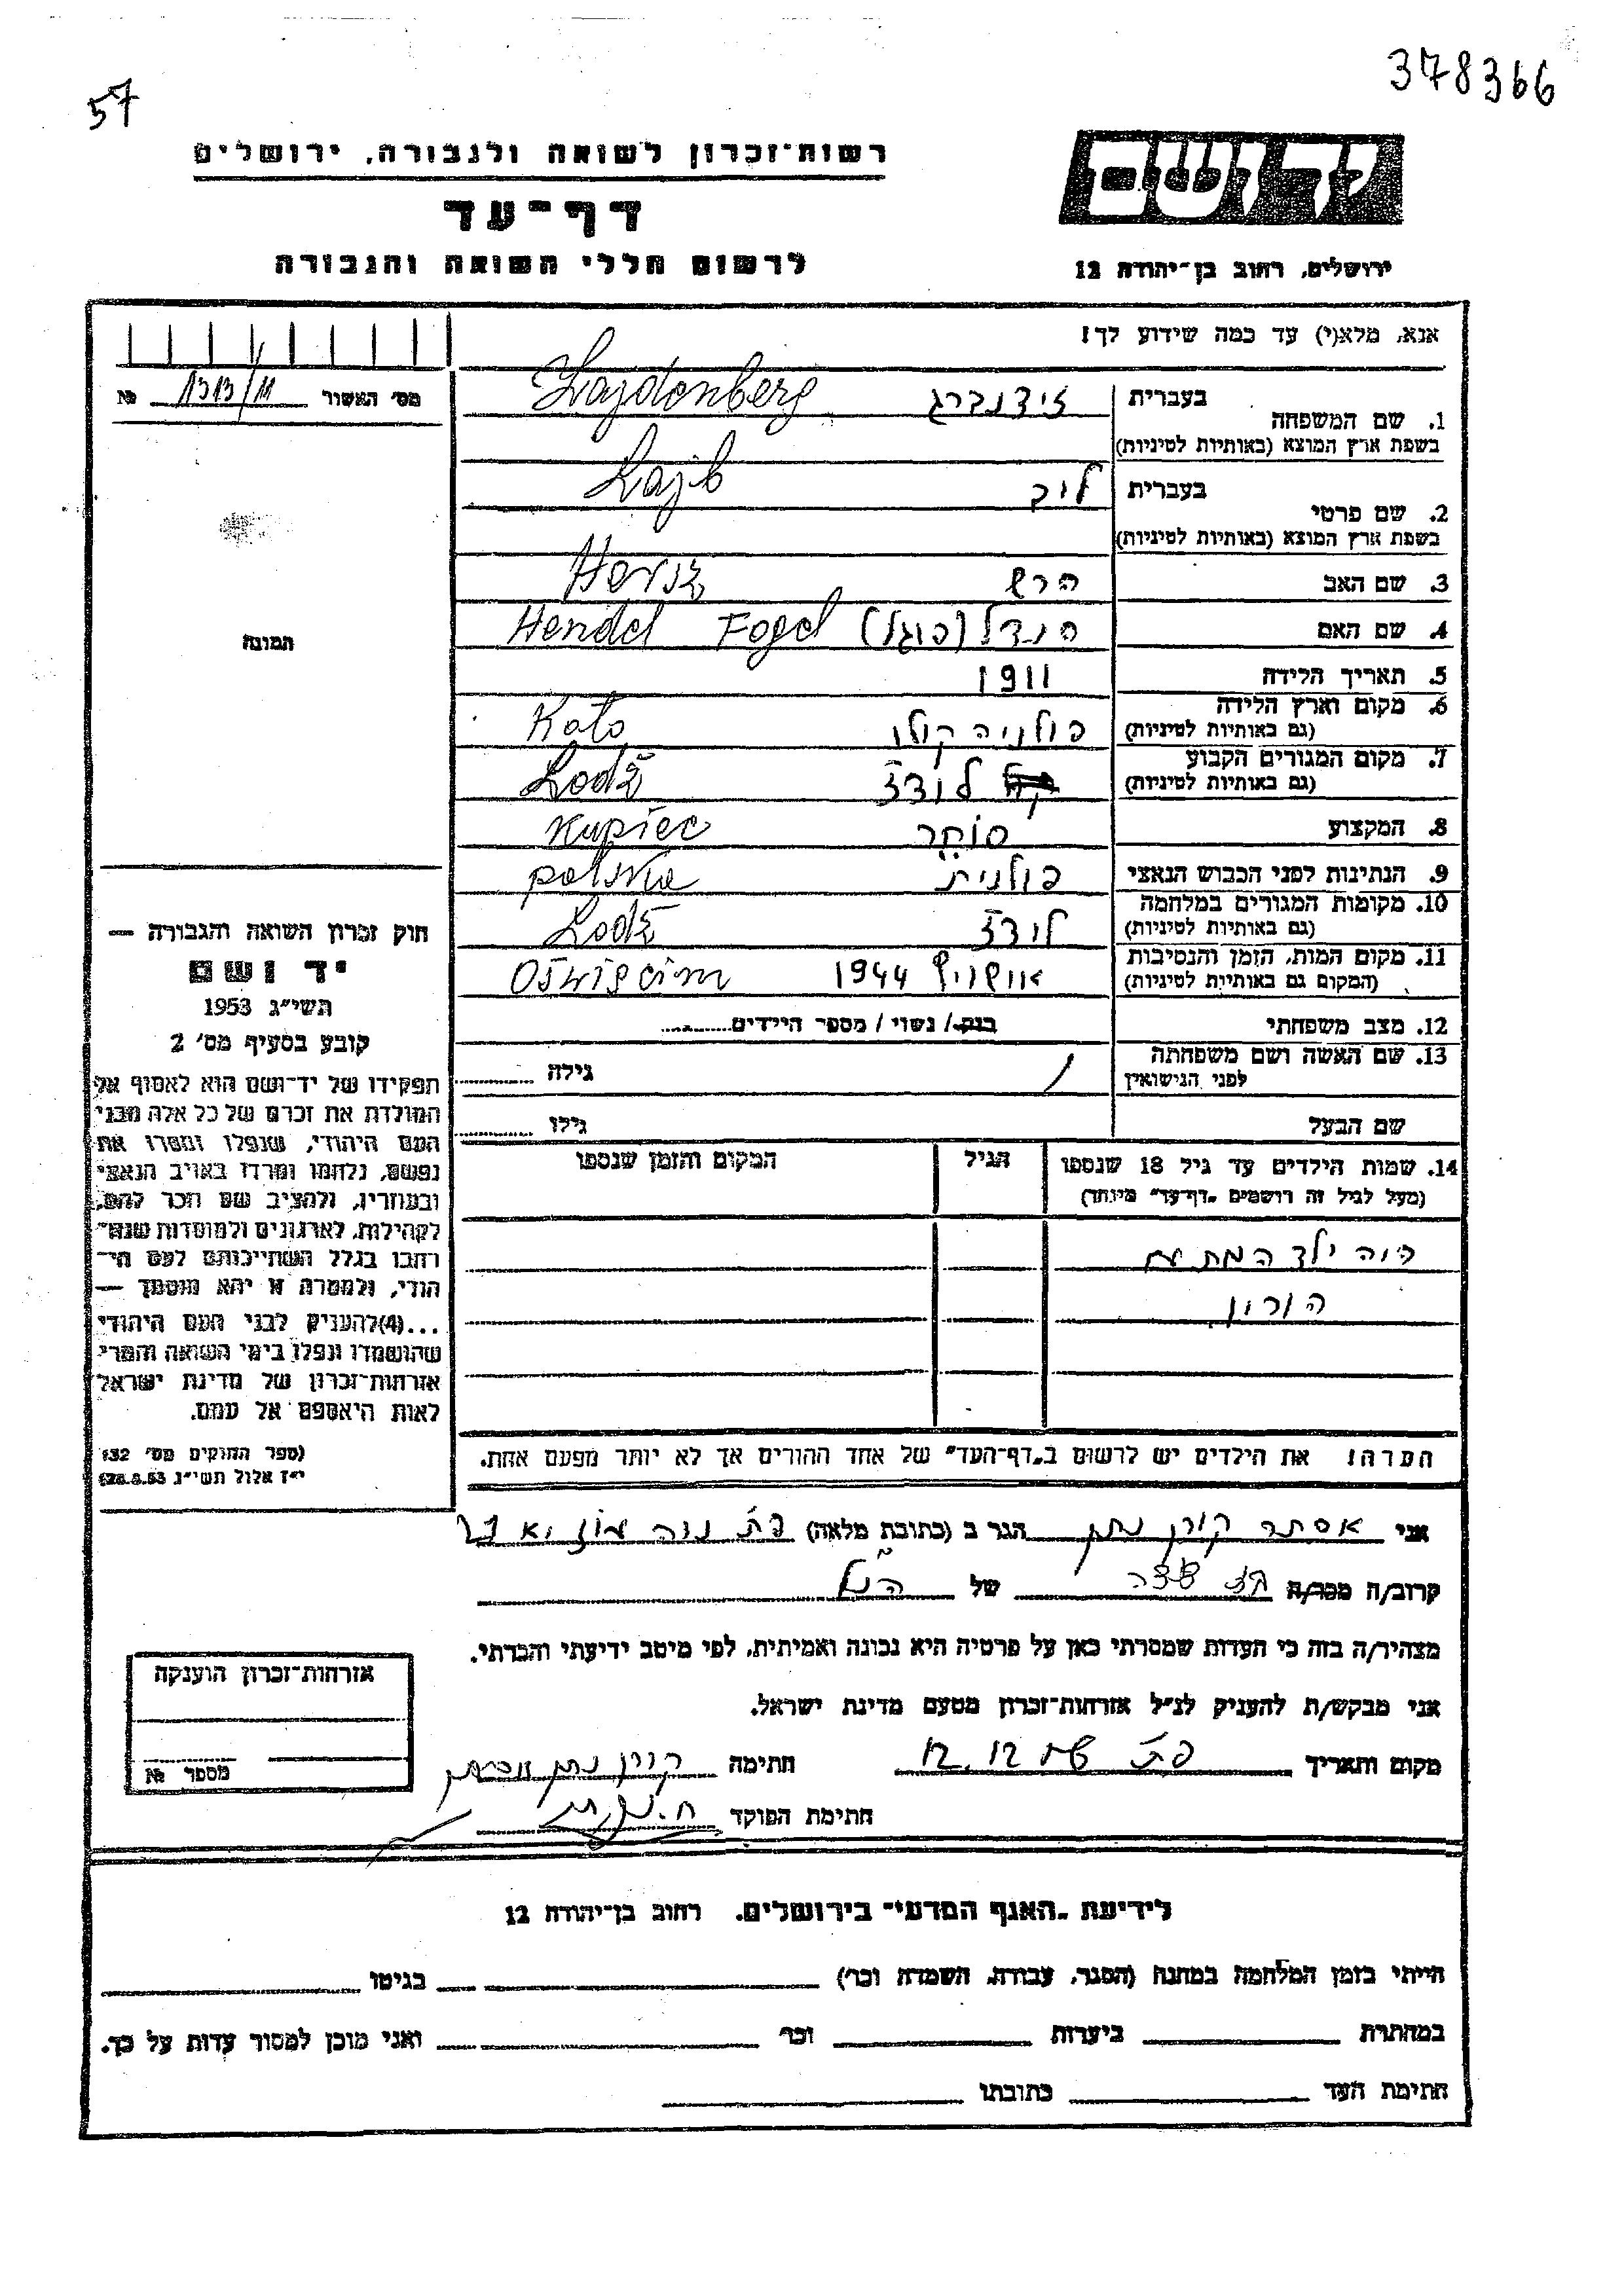 378366
57
רשות־זכרון לשואה ולגבורה, ירושלים
דף־עד
לרשום חללי השואה והגבורה
יד ושם
ירושלים, רחוב בן־יהודה 12
אנא, מלא(י) עד כמה שידוע לך!
מס׳ האשור 1313/11 №
1. שם המשפחה
בעברית זידנברג
בשפת ארץ המוצא (באותיות לטיניות) Zajdenberg
2. שם פרטי
בעברית ליב
בשפת ארץ המוצא (באותיות לטיניות) Lajb
3. שם האב הרש Hersz
4. שם האם הנדל (פוגל) Hendel Fogel
5. תאריך הלידה 1911
6. מקום וארץ הלידה פולניה קולו Koło
(גם באותיות לטיניות)
7. מקום המגורים הקבוע לודז Lodź
(גם באותיות לטיניות)
8. המקצוע סוחר Kupiec
9. הנתינות לפני הכבוש הנאצי פולנית polska
10. מקומות המגורים במלחמה לודז Lodź
(גם באותיות לטיניות)
11. מקום המות, הזמן והנסיבות אושויץ 1944 Oświęcim
(המקום גם באותיות לטיניות)
12. מצב משפחתי רווק/ נשוי / מספר הילדים
13. שם האשה ושם משפחתה גילה
לפני הנישואין
שם הבעל גילו
14. שמות הילדים עד גיל 18 שנספו הגיל המקום והזמן שנספו
(מעל לגיל זה רושמים „דף־עד״ מיוחד)
היה ילד המת עם
הורין
הערה! את הילדים יש לרשום ב„דף־העד״ של אחד ההורים אך לא יותר מפעם אחת.
התמונה
חוק זכרון השואה והגבורה —
יד ושם
תשי״ג 1953
קובע בסעיף מס׳ 2
תפקידו של יד־ושם הוא לאסוף אל
המולדת את זכרם של כל אלה מבני
העם היהודי, שנפלו ומסרו את
נפשם, נלחמו ומרדו באויב הנאצי
ובעוזריו, ולהציב שם וזכר להם,
לקהילות, לארגונים ולמוסדות שנח־
רבו בגלל השתייכותם לעם הי־
הודי, ולמטרה זו יהא מוסמך —
...(4)להעניק לבני העם היהודי
שהושמדו ונפלו בימי השואה והמרי
אזרחות־זכרון של מדינת ישראל
לאות היאספם אל עמם.
(ספר החוקים מס׳ 132
י״ז אלול תשי״ג 28.8.53)
אני אסתר קורן נתן הגר ב (כתובת מלאה) פ״ת נוה עוז
קרוב/ה מכר/ה של הנ״ל
מצהיר/ה בזה כי העדות שמסרתי כאן על פרטיה היא נכונה ואמיתית, לפי מיטב ידיעתי והכרתי.
אני מבקש/ת להעניק לנ״ל אזרחות־זכרון מטעם מדינת ישראל.
מקום ותאריך פ״ת 12.12 חתימה קורן נתן
חתימת הפוקד
אזרחות־זכרון הוענקה
מספר №
לידיעת „האגף המדעי״ בירושלים, רחוב בן־יהודה 12
הייתי בזמן המלחמה במחנה (הסגר, עבודה, השמדה וכו׳) בגיטו
במחתרת ביערות וכו׳ ואני מוכן למסור עדות על כך.
חתימת העד כתובתו